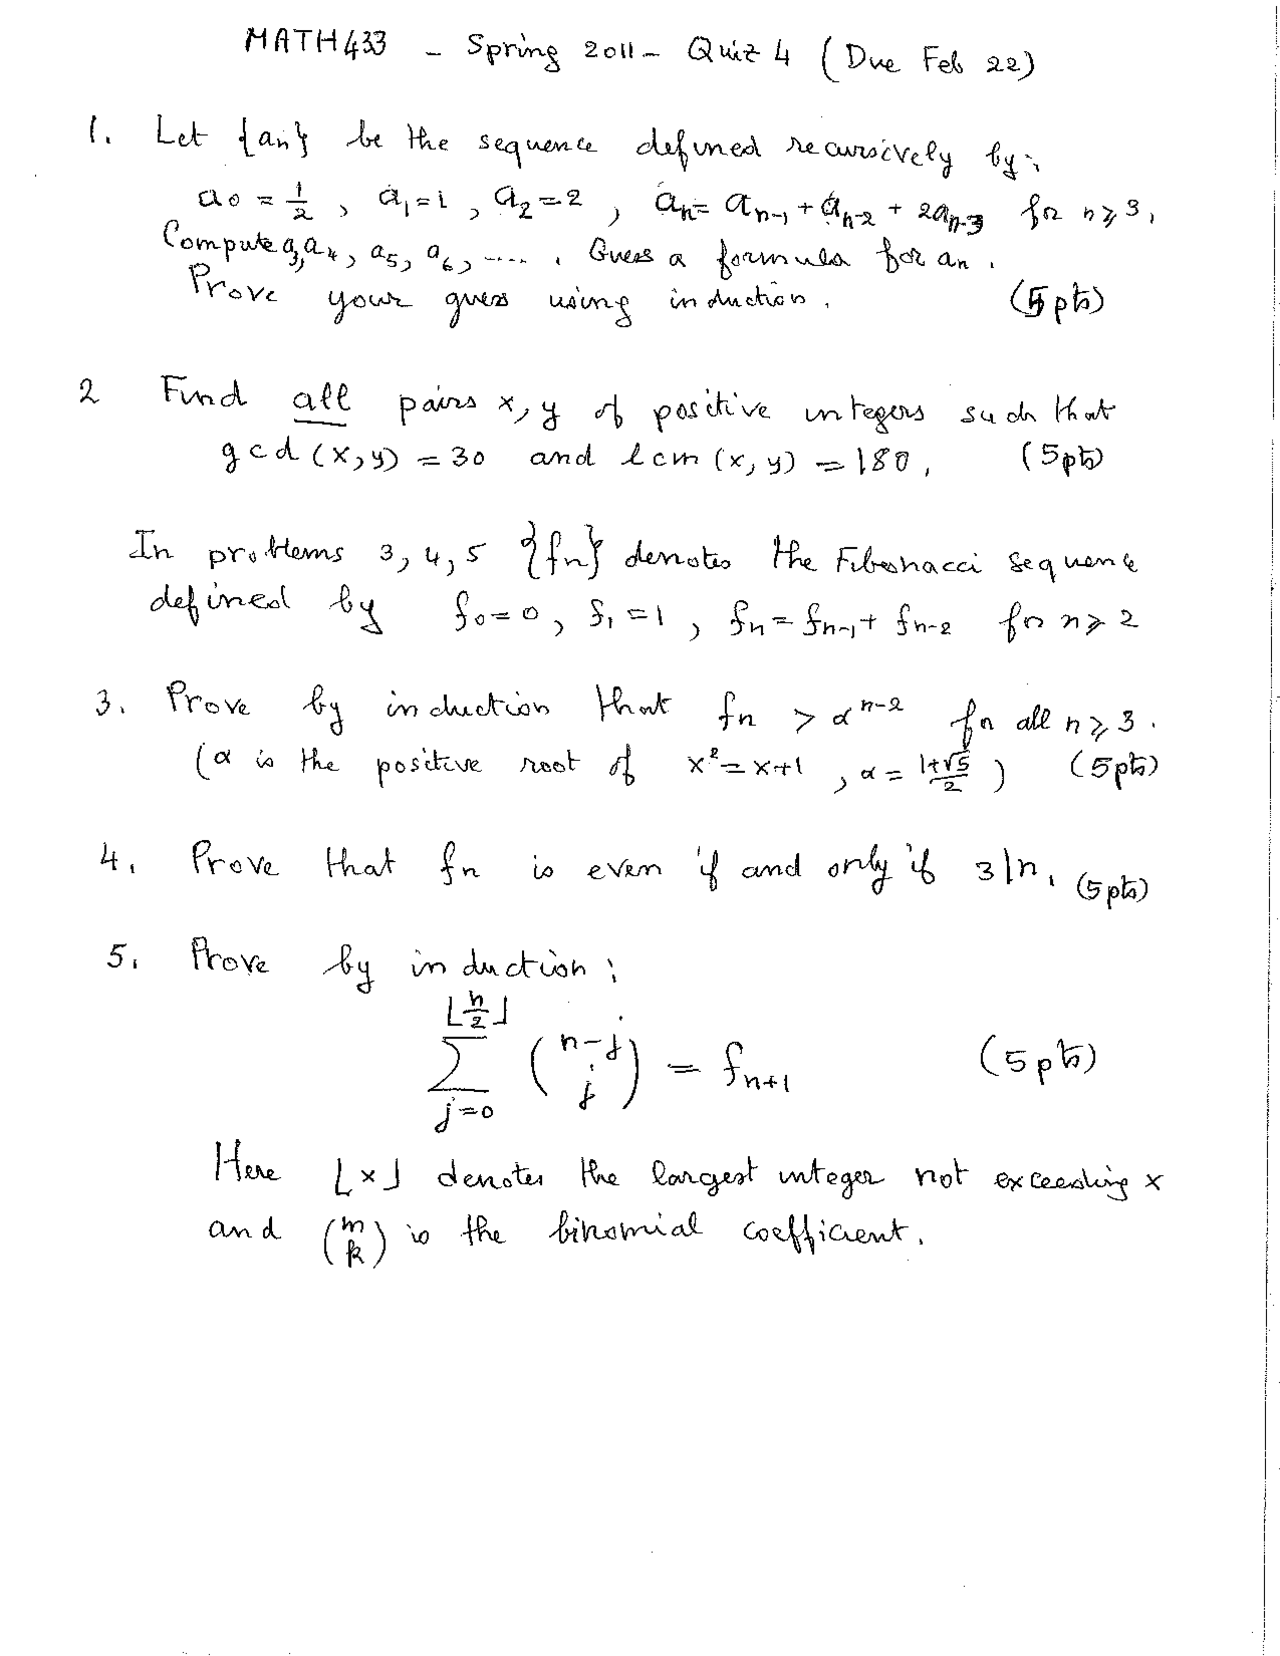 MATH433 - Spring 2011 - Quiz 4 (Due Feb 22)
1. Let {an} be the sequence defined recursively by:
a0 = 1/2, a1=1, a2=2, an= an-1 + an-2 + 2an-3 for n≥3,
Compute a3, a4, a5, a6, ..... . Guess a formula for an.
Prove your guess using induction. (5pts)
2 Find all pairs x, y of positive integers such that
gcd(x,y) = 30 and lcm(x,y) = 180. (5pts)
In problems 3, 4, 5 {fn} denotes the Fibonacci sequence
defined by f0=0, f1=1, fn= fn-1+ fn-2 for n≥2
3. Prove by induction that fn > α^n-2 for all n≥3.
(α is the positive root of x²=x+1, α = 1+√5/2) (5pts)
4. Prove that fn is even if and only if 3|n. (5pts)
5. Prove by induction:
∑_{j=0}^{⌊n/2⌋} (n-j j) = fn+1 (5pts)
Here ⌊x⌋ denotes the largest integer not exceeding x
and (m k) is the binomial coefficient.